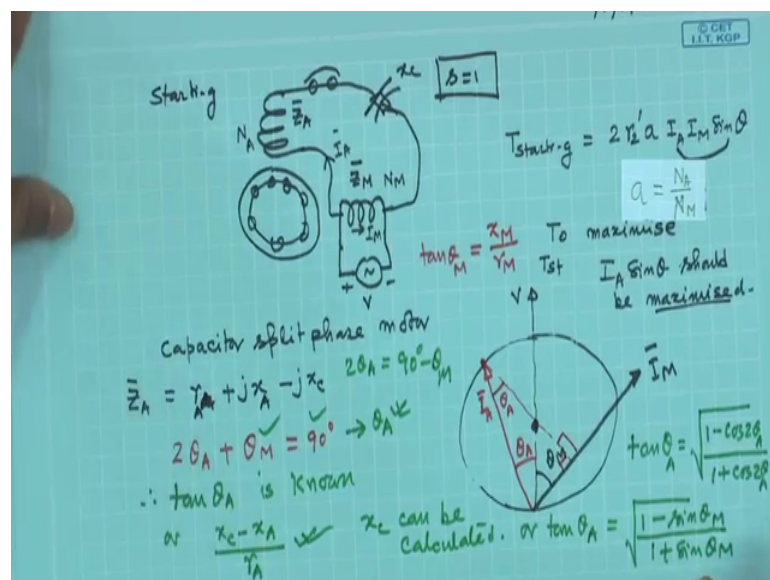 © CET
I.I.T. KGP
Starting
x_c
s=1
Z̄_A
N_A
Ī_A
Z̄_M N_M
I_M
+ V -
T_starting = 2 r_2' a I_A I_M sinθ
a = N_A / N_M
tanθ_M = x_M / r_M
To maximise
T_st I_A sinθ should
be maximised.
capacitor split phase motor
Z̄_A = r_A + jx_A - jx_c
2θ_A = 90° - θ_M
2θ_A + θ_M = 90° → θ_A
∴ tanθ_A is known
or (x_c - x_A) / r_A
x_c can be
calculated.
V
Ī_M
Ī_A
θ_A
θ_A
θ_M
tanθ_A = √((1 - cos2θ_A) / (1 + cos2θ_A))
or tanθ_A = √((1 - sinθ_M) / (1 + sinθ_M))